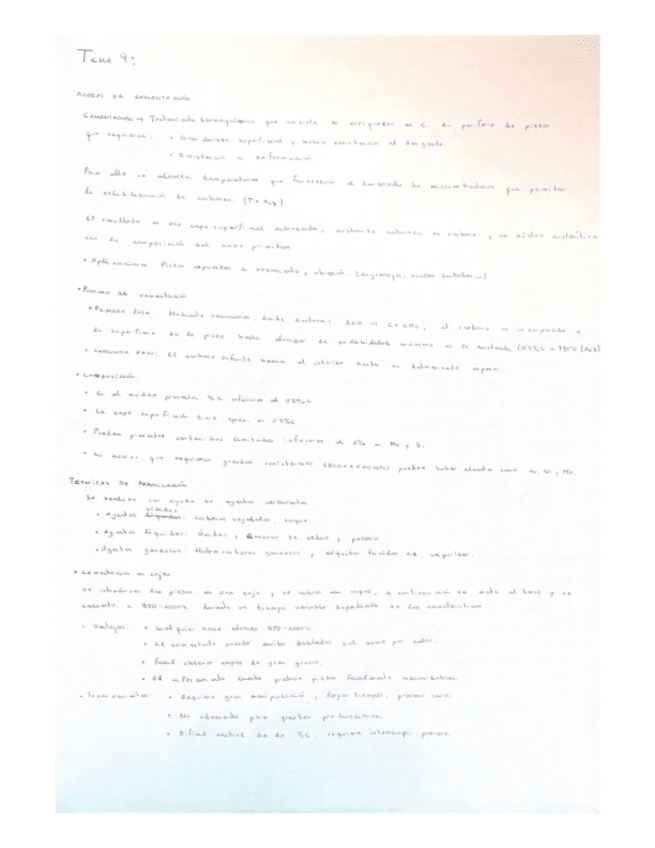 TEMA 9:
ACEROS DE CEMENTACIÓN
CEMENTACIÓN → Tratamiento termoquímico que consiste en enriquecer en C. la periferia de piezas
que requieren: • Gran dureza superficial y buena resistencia al desgaste.
• Resistencia a deformación.
Para ello se alcanzan temperaturas que favorecen el desarrollo de microestructuras que permitan
la solubilización de carbono. (T > Ac3)
El resultado es una capa superficial endurecida, austenita saturada en carbono y un núcleo austenítico
con la composición del acero primitivo
• Aplicaciones: Piezas expuestas a rozamiento y abrasión. (engranajes, ruedas dentadas...)
• PROCESO DE cementación
• PRIMERA FASE: Mediante reacciones, dicha sustancia: 2CO → C + CO2, el carbono es incorporado a
la superficie de la pieza hasta alcanzar su solubilidad máxima en la austenita
• SEGUNDA FASE: El carbono difunde hacia el interior hasta un determinado espesor.
• Composición:
• En el núcleo presentan %C inferior al
• La capa superficial
• Pueden presentar contenidos limitados inferiores al 1% en Mn y Si.
• En aceros que requieran grandes resistencias pueden haber aleado como Cr, Ni, Mo.
TÉCNICAS DE FABRICACIÓN
Se realiza con ayuda de agentes carburantes
• Agentes sólidos: carbones vegetales, coque.
• Agentes líquidos: cianuros de sodio y potasio
• Agentes gaseosos: Hidrocarburos gaseosos y líquidos fáciles de vaporizar.
• Cementación en cajas
Se introducen las piezas en una caja y se cubren con coque, a continuación se mete al horno y se
calienta a 850-1000ºC durante un tiempo variable dependiendo de las características
- Ventajas: • Cualquier horno alcanza 850-1000ºC
• El cementante sólido evita doblados del acero por calor.
• Fácil obtener capas de gran grosor.
• El enfriamiento lento produce piezas fácilmente mecanizables.
- Inconvenientes: • Requiere gran manipulación, largos tiempos, proceso caro.
• No adecuado para grandes producciones.
• Difícil control de la %C, requiere interrumpir proceso.